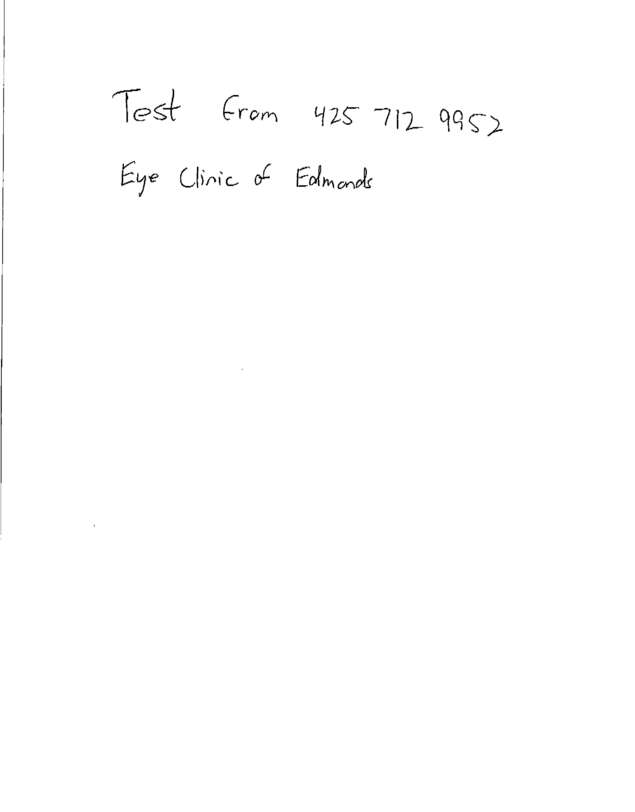 Test from 425 712 9952
Eye Clinic of Edmonds